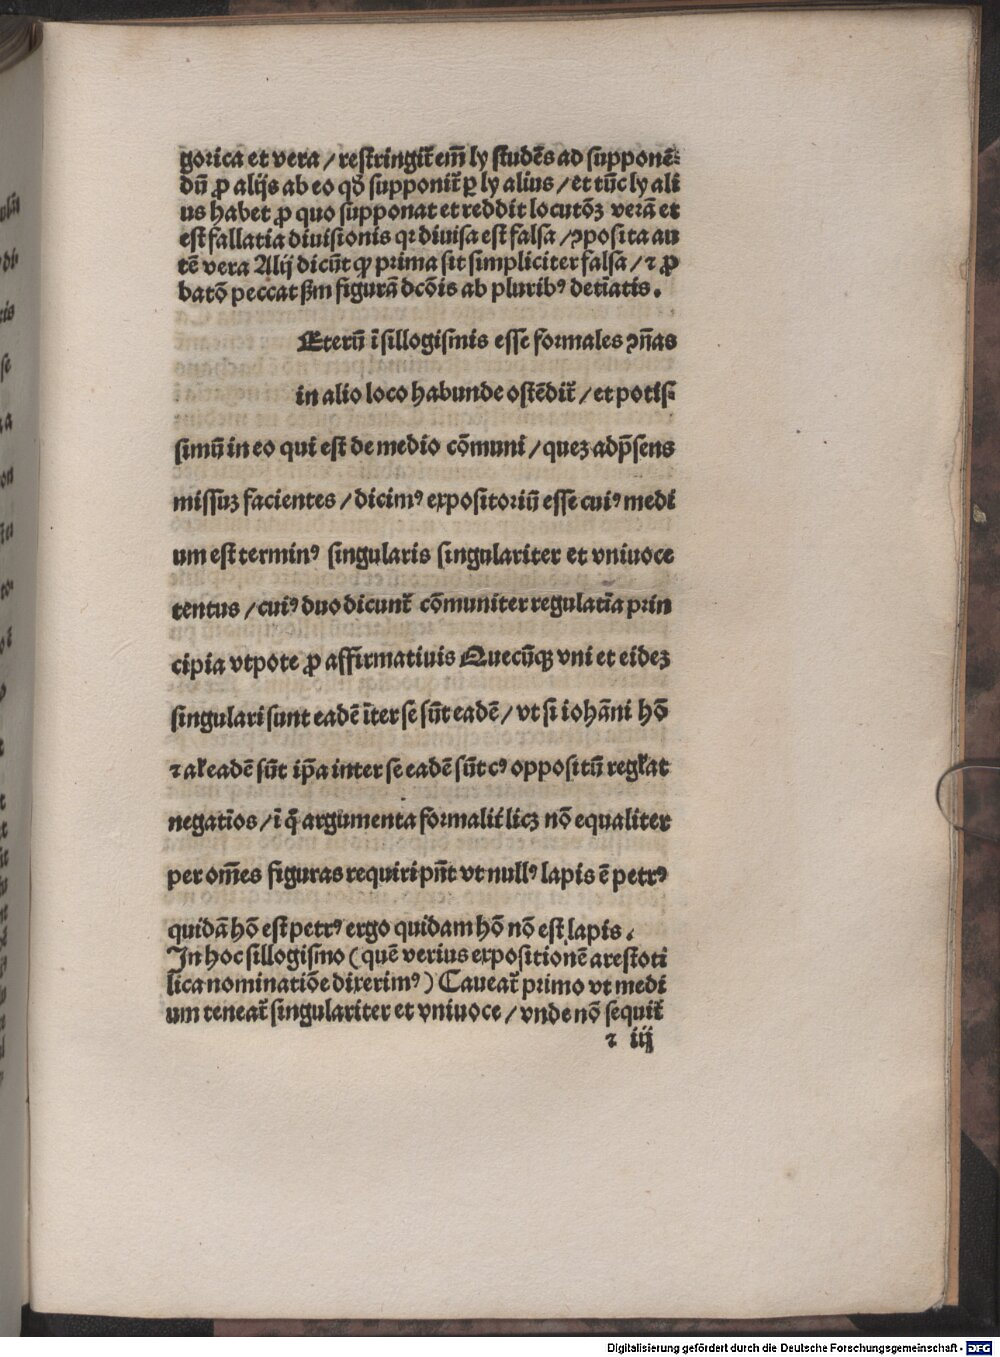 gorica et vera / restringit᷑ em̄ ly studēs ad supponē⸗
dū ꝓ alijs ab eo qd̄ supponit᷑ ꝑ ly alius / et tūc ly ali
us habet ꝓ quo supponat et reddit locutōꝫ verā et
est fallatia diuisionis qꝛ diuisa est falsa / ꝯposita au
tē vera Alij dicūt ꝙ prima sit simpliciter falsa / ⁊ ꝓ
batō peccat ẜm figurā dcōis ab pluribꝰ detīatis.
Eterū ī sillogismis esse formales ꝯn̄as
in alio loco habunde ostēdit᷑ / et potis⸗
simū in eo qui est de medio cōmuni / queꝫ ad pn̄sens
missuꝫ facientes / dicimꝰ expositoriū esse cuiꝰ medi
um est terminꝰ singularis singulariter et vniuoce
tentus / cuiꝰ duo dicunt᷑ cōmuniter regulatīa prin
cipia vtpote ꝓ affirmatiuis Quecūqꝫ vni et eideꝫ
singulari sunt eadē īter se sūt eadē / vt si iohāni hō
⁊ al' eadē sūt ip̄a inter se eadē sūt cꝰ oppositū regl'at
negatīos / ī q̄ argumenta formalit᷑ licꝫ nō equaliter
per om̄es figuras requiri pn̄t vt nullꝰ lapis ē petrꝰ
quidā hō est petrꝰ ergo quidam hō nō est lapis.
In hoc sillogismo (quē verius expositionē arestoti
lica nominatiōe dixerimꝰ) Caueat᷑ primo vt medi
um teneat᷑ singulariter et vniuoce / vnde nō sequit᷑
⁊ iij
Digitalisierung gefördert durch die Deutsche Forschungsgemeinschaft - DFG